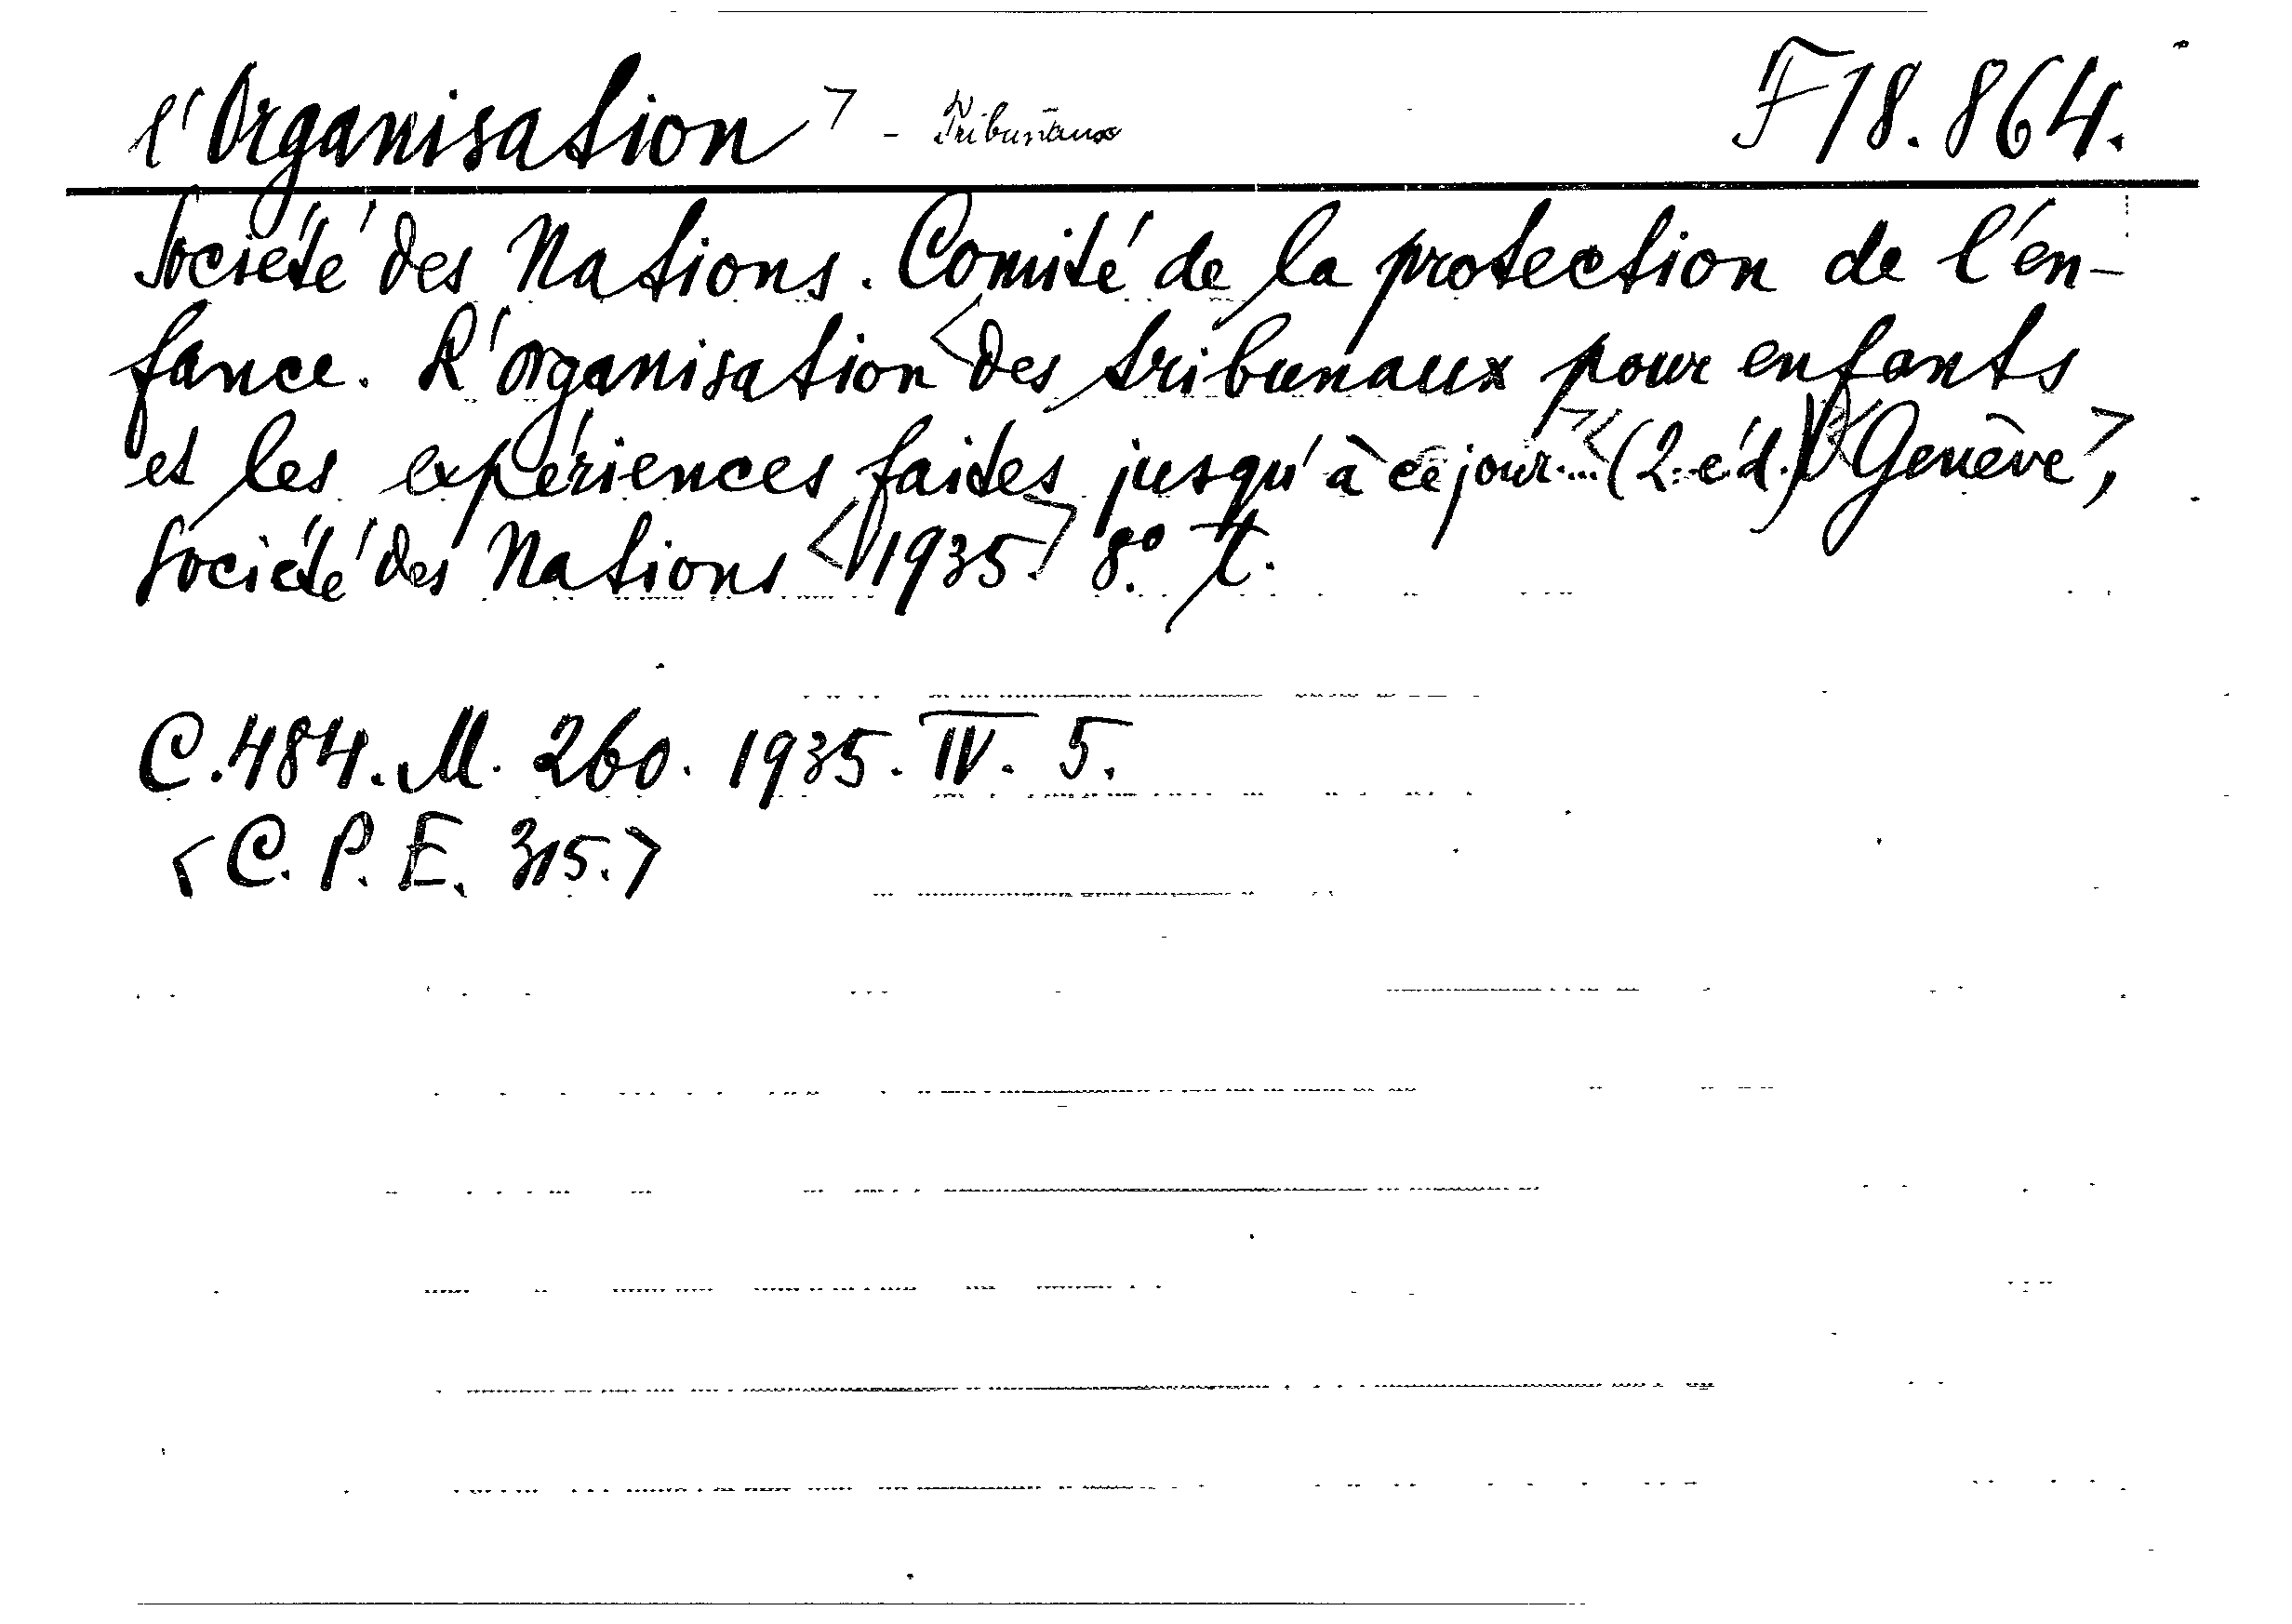 l'Organisation> - Tribunaux F 18.864.
Société des Nations. Comité de la protection de l'en-
fance. L'organisation <des tribunaux pour enfants
et les expériences faites jusqu'à ce jour...> <(2. éd.)> <Genève>,
Société des Nations <1935.> 8.° t.
C.484. M. 260. 1935. IV. 5.
<C. P. E. 315.>